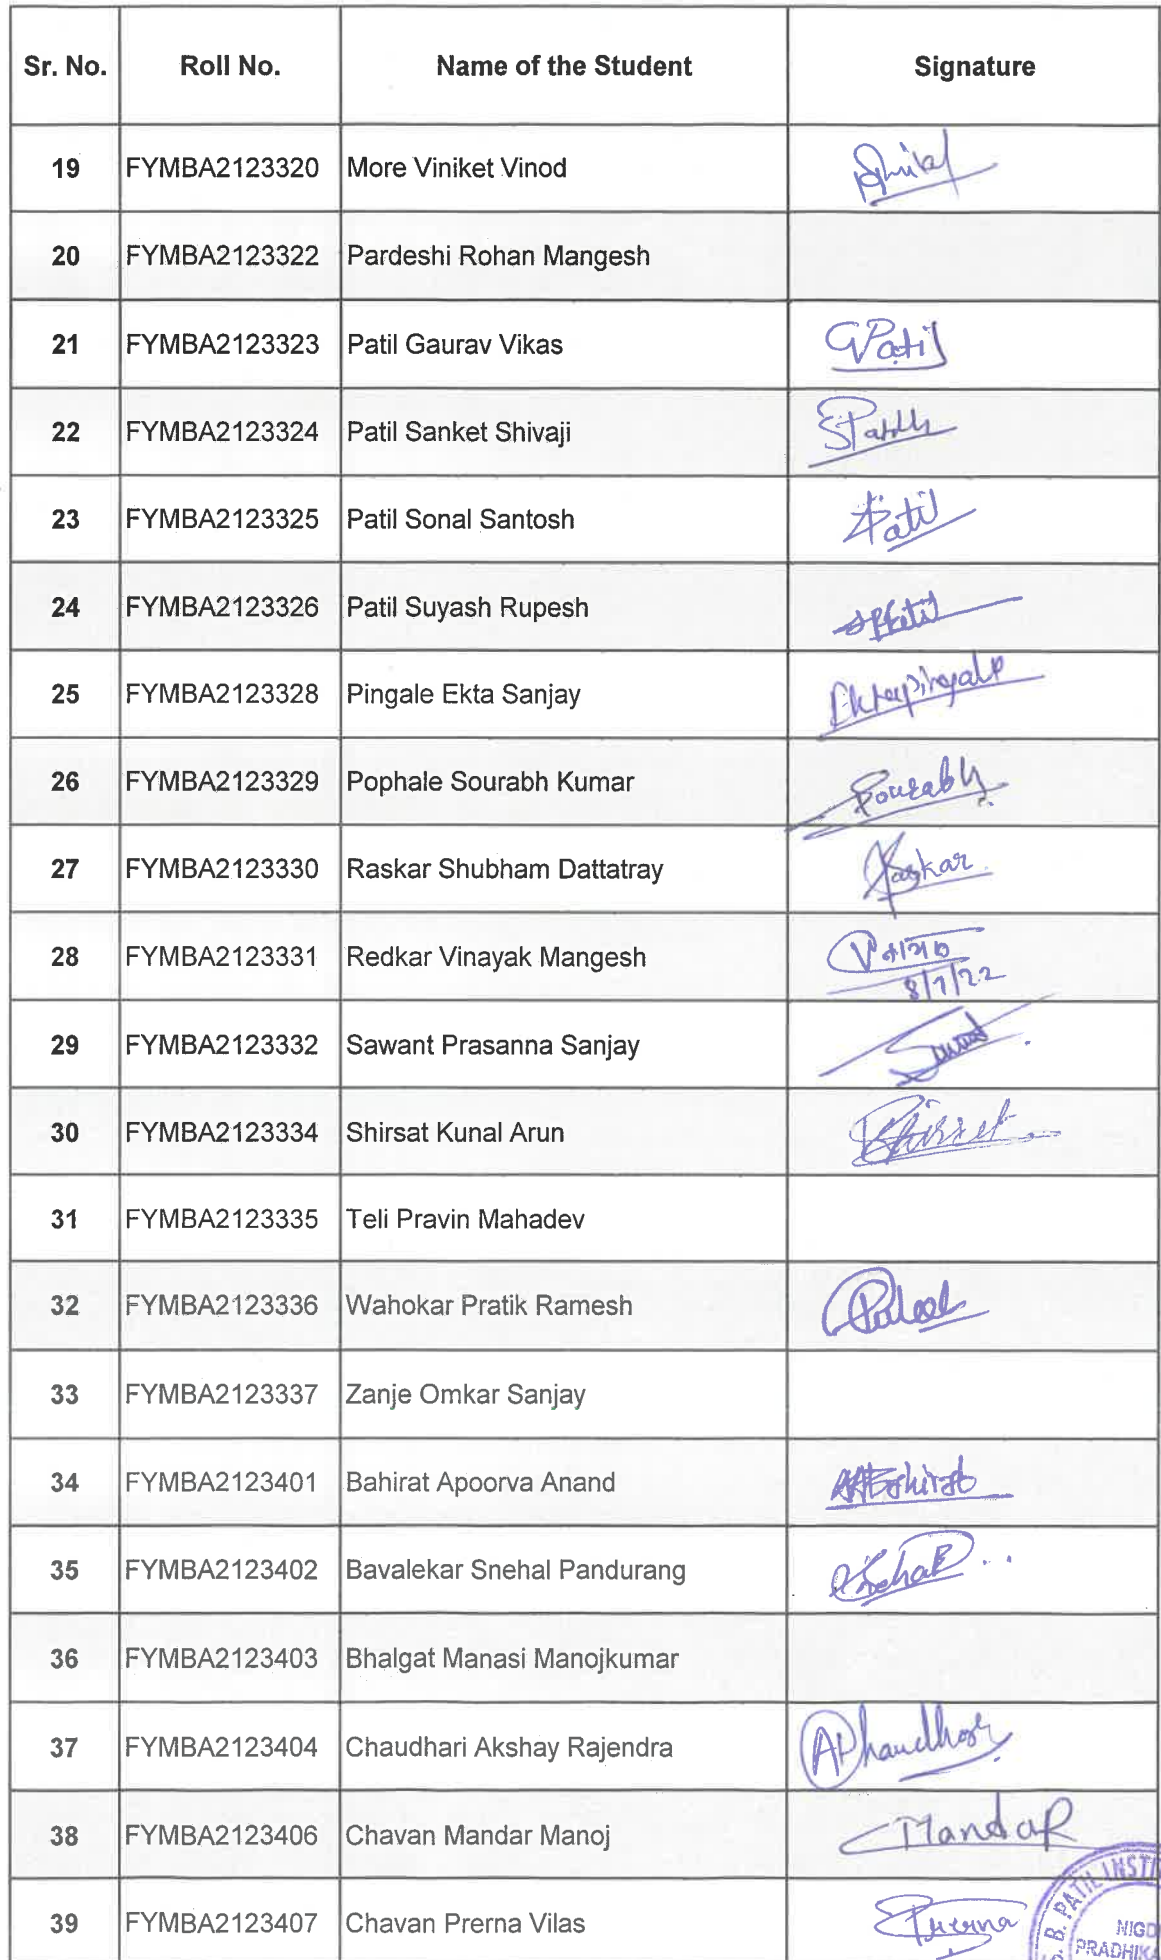 Sr. No. Roll No. Name of the Student Signature
19 FYMBA2123320 More Viniket Vinod
20 FYMBA2123322 Pardeshi Rohan Mangesh
21 FYMBA2123323 Patil Gaurav Vikas GPatil
22 FYMBA2123324 Patil Sanket Shivaji
23 FYMBA2123325 Patil Sonal Santosh Patil
24 FYMBA2123326 Patil Suyash Rupesh
25 FYMBA2123328 Pingale Ekta Sanjay
26 FYMBA2123329 Pophale Sourabh Kumar Sourabh
27 FYMBA2123330 Raskar Shubham Dattatray Raskar
28 FYMBA2123331 Redkar Vinayak Mangesh
8/7/22
29 FYMBA2123332 Sawant Prasanna Sanjay
30 FYMBA2123334 Shirsat Kunal Arun
31 FYMBA2123335 Teli Pravin Mahadev
32 FYMBA2123336 Wahokar Pratik Ramesh
33 FYMBA2123337 Zanje Omkar Sanjay
34 FYMBA2123401 Bahirat Apoorva Anand
35 FYMBA2123402 Bavalekar Snehal Pandurang
36 FYMBA2123403 Bhalgat Manasi Manojkumar
37 FYMBA2123404 Chaudhari Akshay Rajendra
38 FYMBA2123406 Chavan Mandar Manoj Mandar
39 FYMBA2123407 Chavan Prerna Vilas Prerna
B. PATIL INSTI
NIGD
PRADHIKA